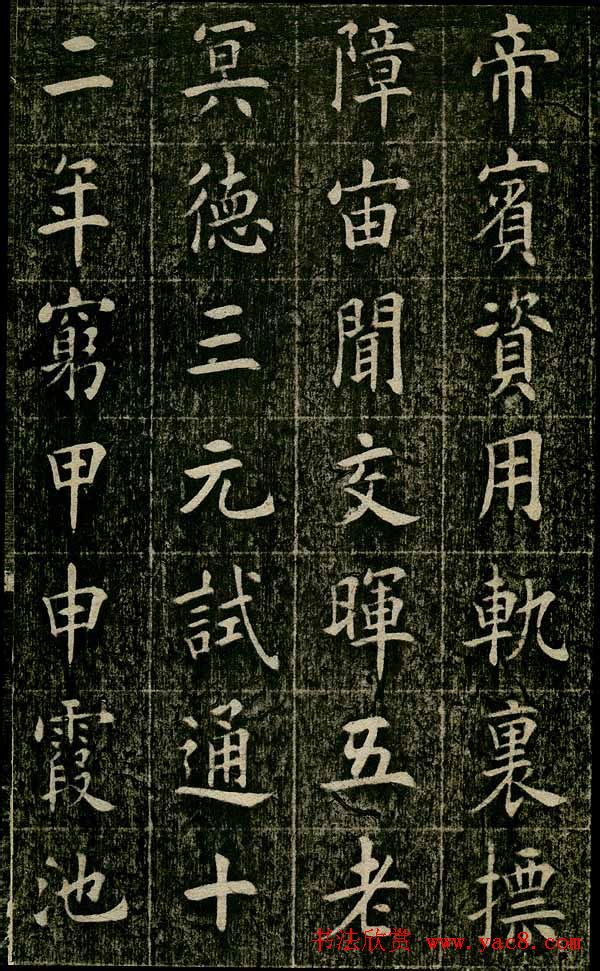 帝賓資用軌裏標
障宙聞交暉五老
冥德三元試通十
二年窮甲申霞池
书法欣赏 www.yac8.com